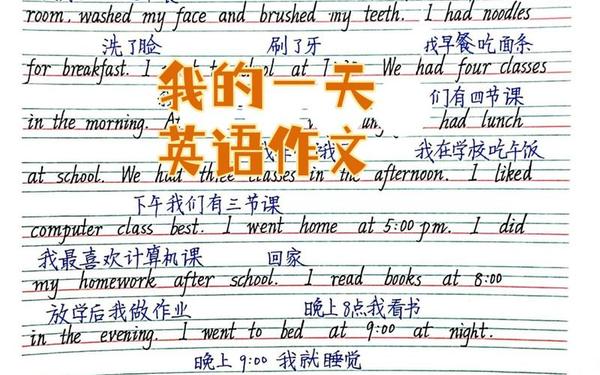 room, washed my face and brushed my teeth. I had noodles
洗了脸 刷了牙 我早餐吃面条
for breakfast. I at We had four classes
我的一天
们有四节课
in the morning. had lunch
英语作文
我在学校吃午饭
at school. We had three classes in the afternoon. I liked
下午我们有三节课
computer class best. I went home at 5:00 pm. I did
我最喜欢计算机课 回家
my homework after school. I read books at 8:00
放学后我做作业 晚上8点我看书
in the evening. I went to bed at 9:00 at night.
晚上9:00我就睡觉